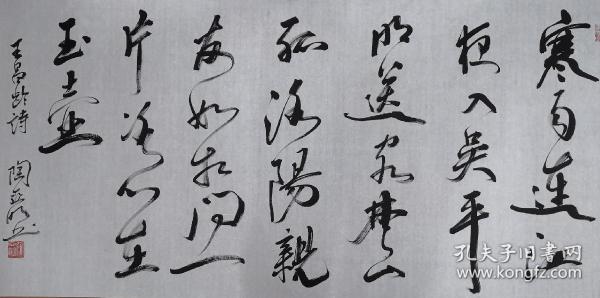 寒雨連江
夜入吴平
明送客楚山
孤洛陽親
友如相問一
片冰心在
玉壶
王昌龄詩 陶亚明书
孔夫子旧书网
www.kongfz.com